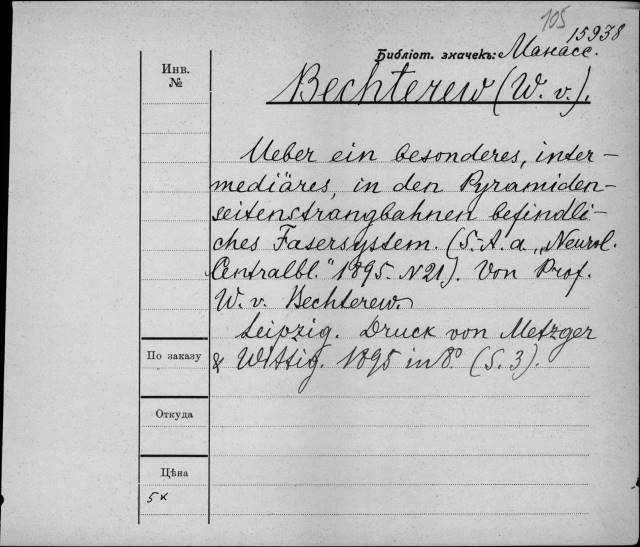 105
15938
Библіот. значекъ: Манасс.
Инв.
№
Bechterew (W. v.).
Ueber ein besonderes, inter-
mediäres, in den Pyramiden-
seitenstrangbahnen befindli-
ches Fasersystem. (S. A. a. „Neurol.
Centralbl." 1895. N 21). Von Prof.
W. v. Bechterew.
Leipzig. Druck von Metzger
& Wittig. 1895 in 8.º (S. 3).
По заказу
Откуда
Цѣна
5 к